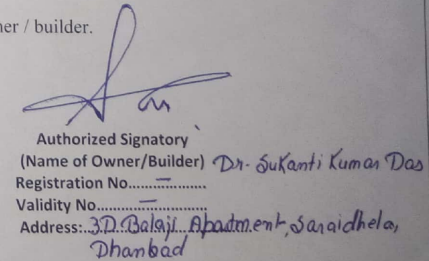 ner / builder.
Authorized Signatory
(Name of Owner/Builder) Dr. Sukanti Kumar Das
Registration No.........—.........
Validity No.........—.........
Address:..3.D. Balaji Apartment, Saraidhela,
Dhanbad